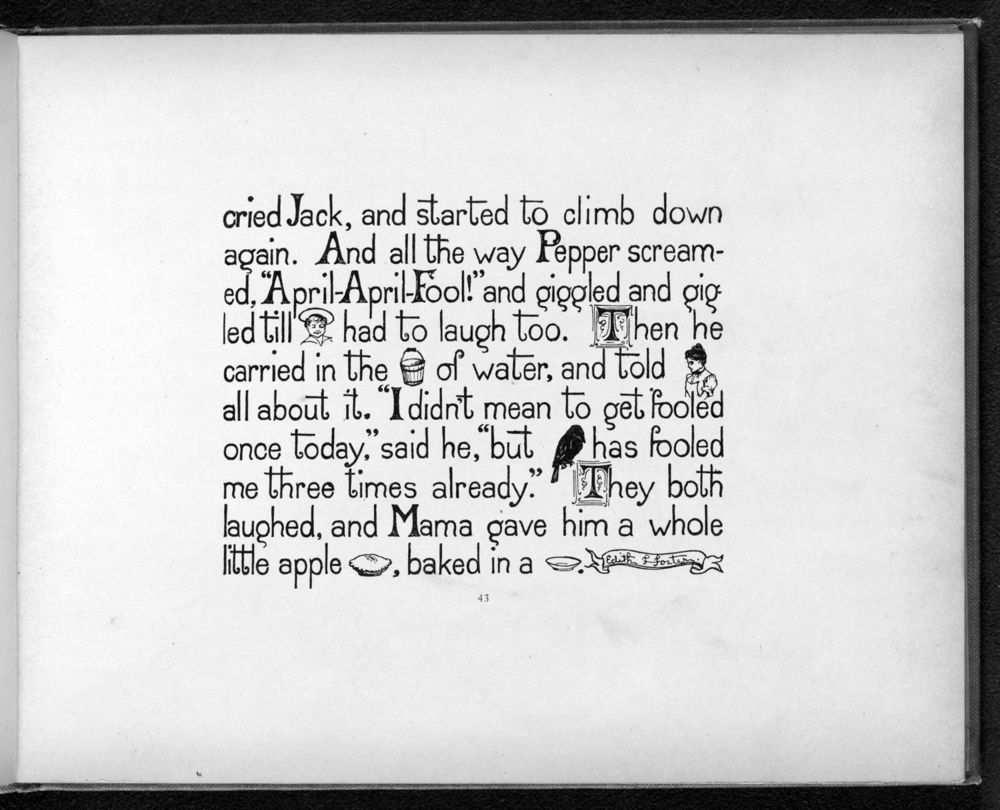 cried Jack, and started to climb down
again. And all the way Pepper scream-
ed, "April-April-Fool!" and giggled and gig-
led till had to laugh too. Then he
carried in the of water, and told
all about it. "I didn't mean to get fooled
once today," said he, "but has fooled
me three times already." They both
laughed, and Mama gave him a whole
little apple , baked in a .
Edith F Foster
43